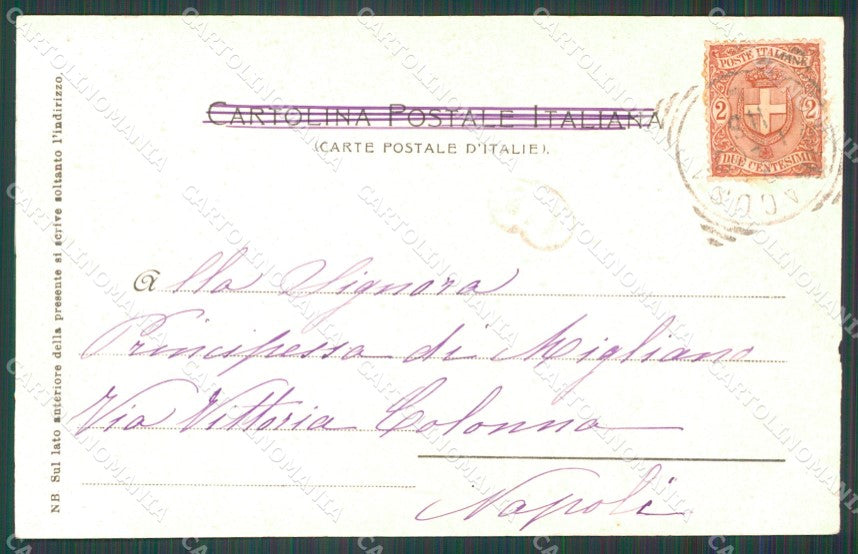 CARTOLINA POSTALE ITALIANA
(CARTE POSTALE D'ITALIE).
POSTE ITALIANE
2 2
DUE CENTESIMI
Alla Signora
Principessa di Migliano
Via Vittoria Colonna
Napoli
NB Sul lato anteriore della presente si scrive soltanto l'indirizzo.
CARTOLINOMANIA